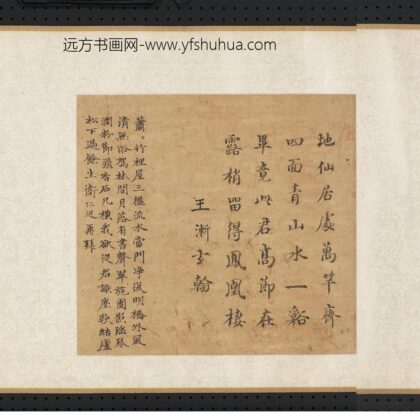 远方书画网-www.yfshuhua.com
地仙居處萬竿齊
四面青山水一谿
畢竟此君髙節在
露梢留得鳳凰棲
王漸書翰
蕭〻竹裡屋三楹流水當門淨復明橋外風
清無俗駕林間月落有書聲翠旄圍影瑤琴
潤粉節飛香石几橫我欲從君
松下過餘生衛仁近再拜